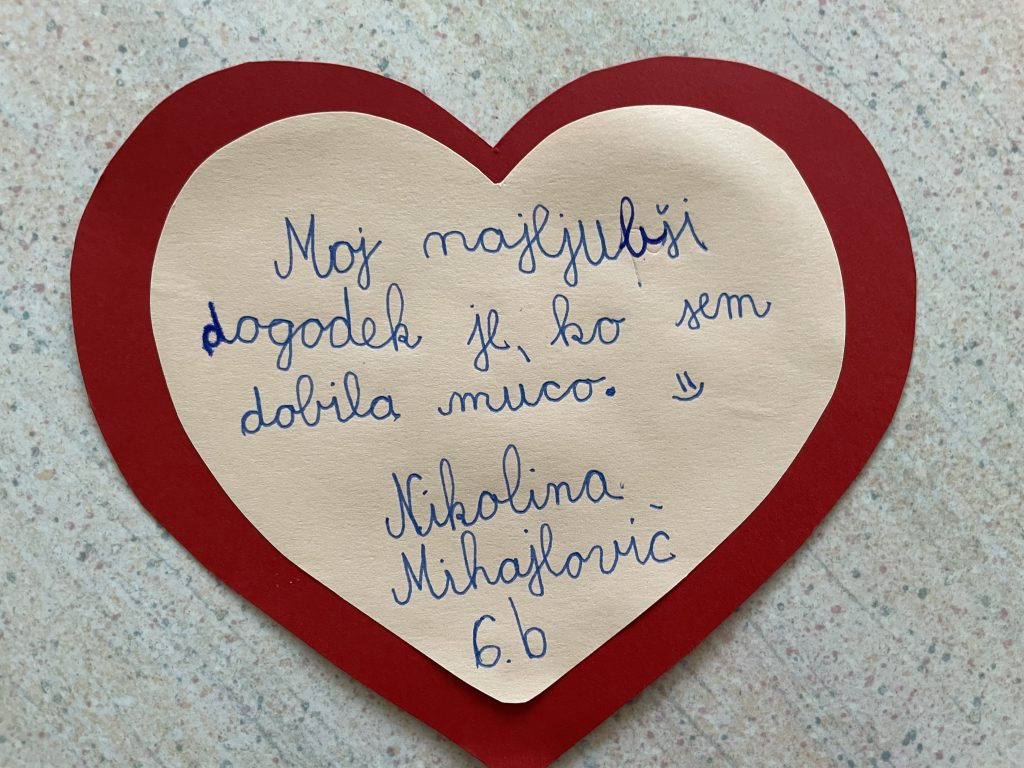 Moj najljubši
dogodek je, ko sem
dobila muco. =)
Nikolina
Mihajlović
6.b